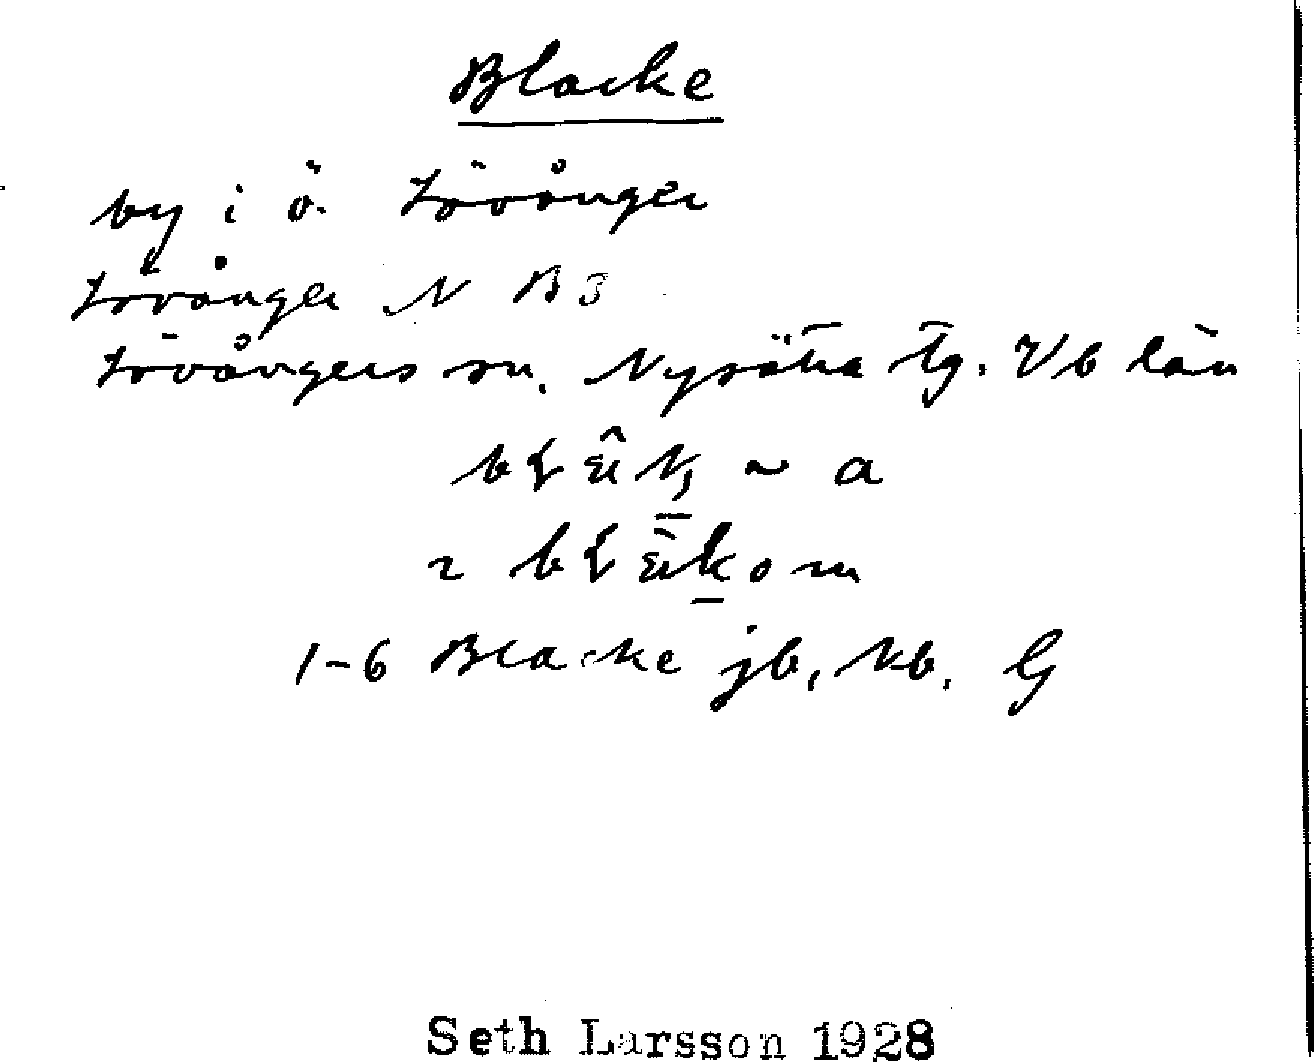 Blacke
by i ö. Lövånger
Lövånger N B 3
Lövångers sn. Nysätra tg. Vb län
~ a
1-6 Blacke jb, kb, G
Seth Larsson 1928